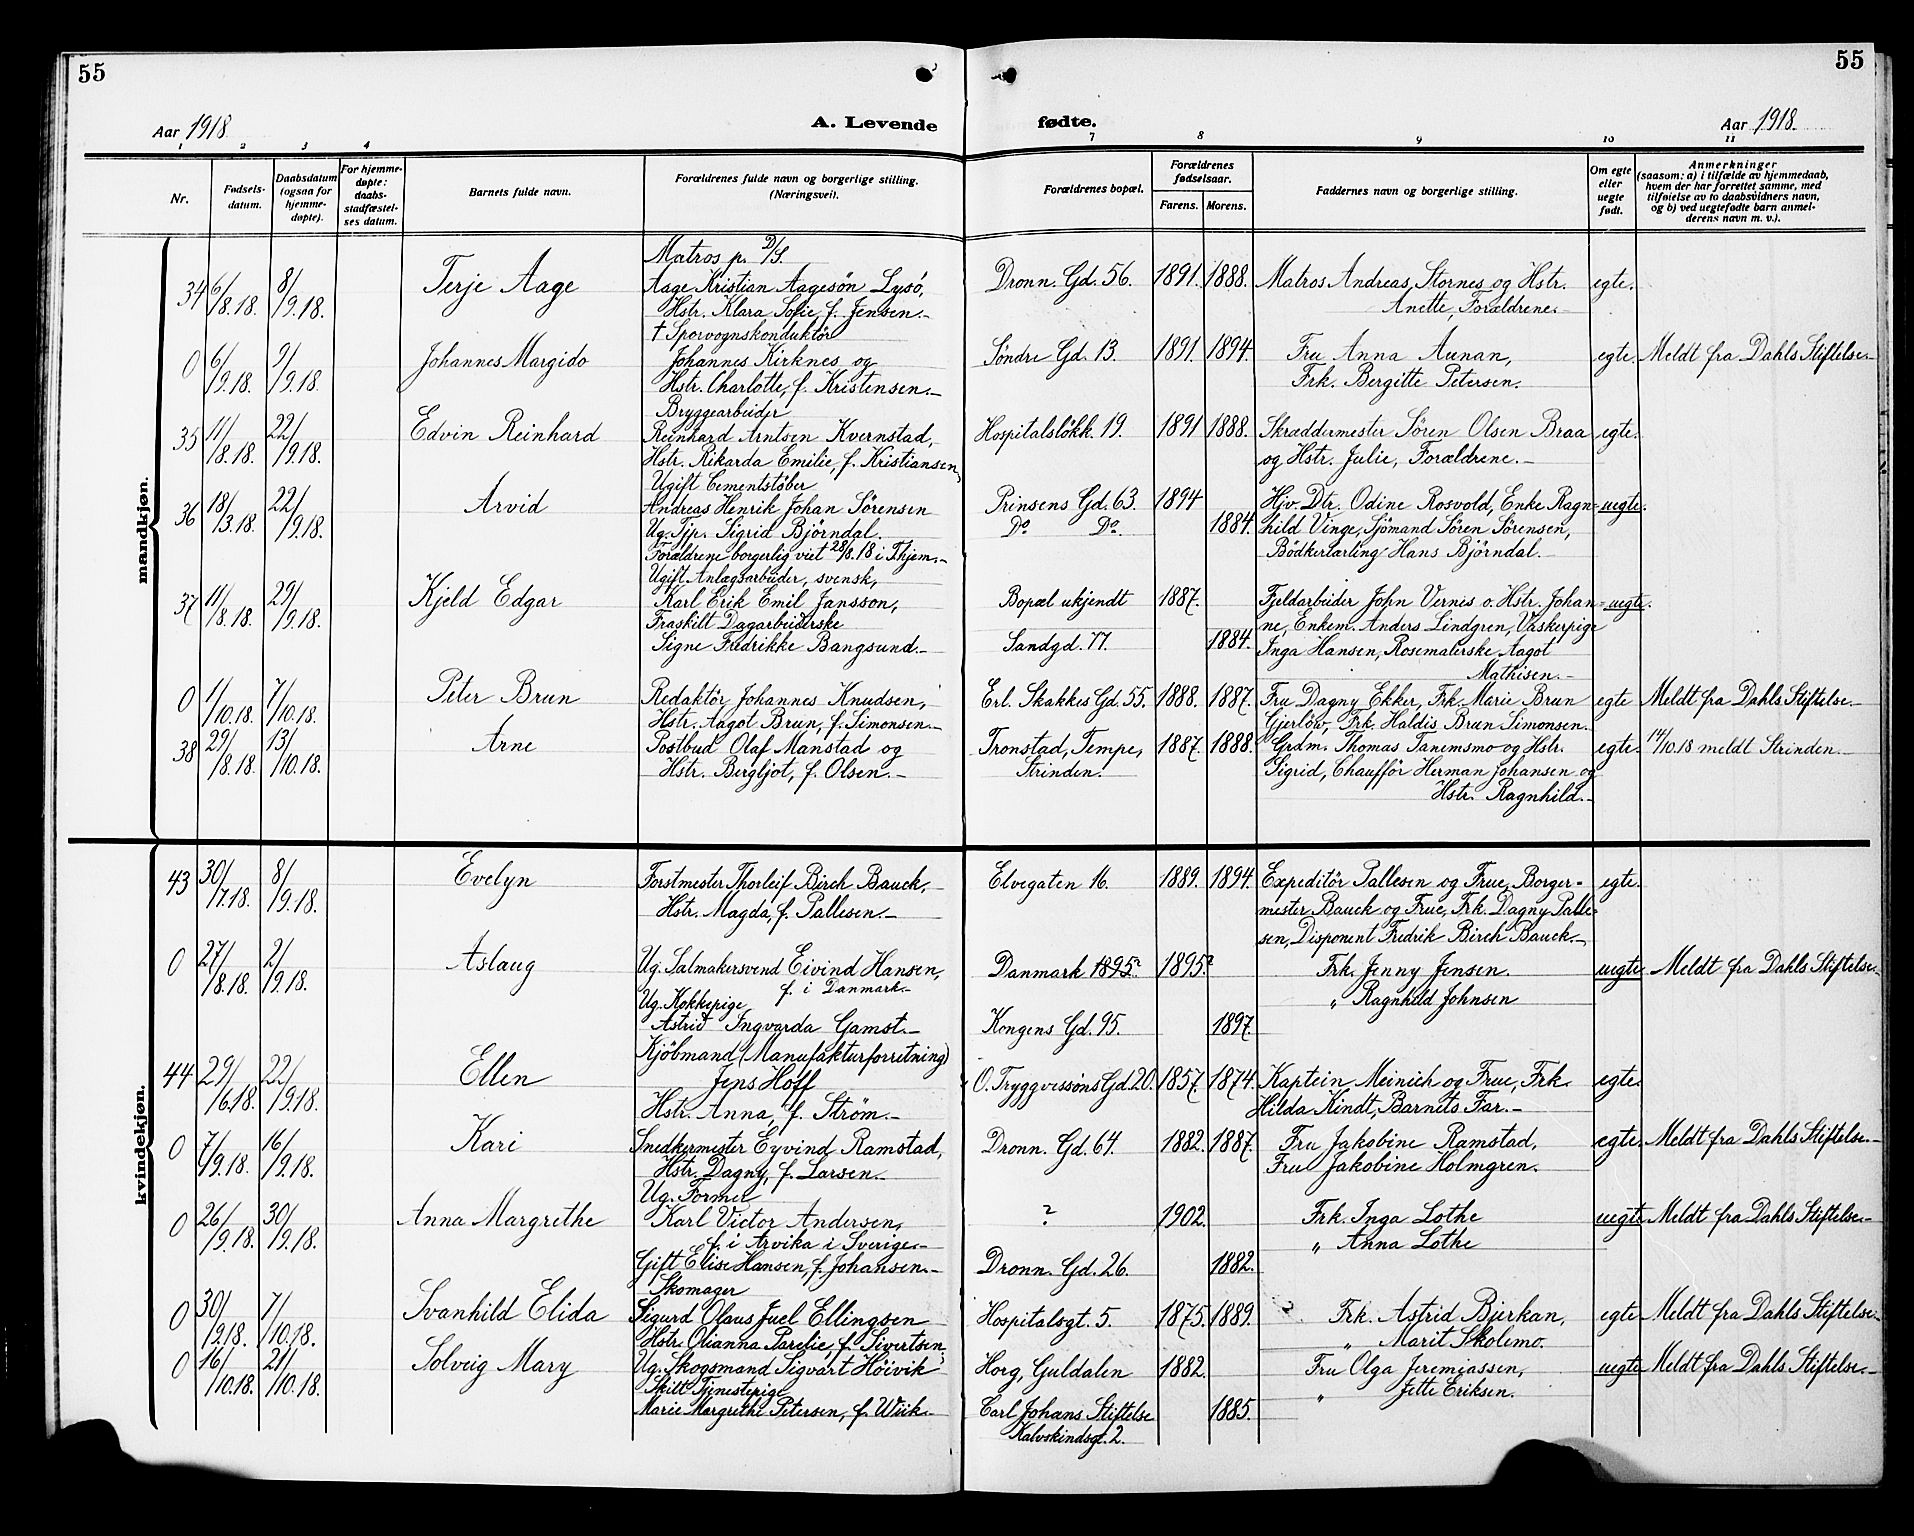 55
55
Aar 1918
A. Levende
fødte.
Aar 1918.
1 2 3 4 7 8 9 10 11
Nr.
Fødsels-
datum.
Daabsdatum
(ogsaa for
hjemme-
døpte).
For hjemme-
døpte:
daabs-
stadfæstel-
ses datum.
Barnets fulde navn.
Forældrenes fulde navn og borgerlige stilling.
(Næringsvei).
Forældrenes bopæl.
Forældrenes
fødselsaar.
Farens. Morens.
Faddernes navn og borgerlige stilling.
Om egte
eller
uegte
født.
Anmerkninger
(saasom: a) i tilfælde av hjemmedaab,
hvem der har forrettet samme, med
tilføielse av to daabsvidners navn,
og b) ved uegtefødte barn anmel-
derens navn m. v.).
mandkjøn.
34 6/8.18. 8/9.18. Terje Aage
Matros p. D/S.
Aage Kristian Aagesön Lysö,
Hstr. Klara Sofie, f. Jensen.-
Dronn. Gd. 56. 1891. 1888.
Matros Andreas Stornes og Hstr.
Anette, Forældrene.-
egte.
0 6/9.18. 9/9.18. Johannes Margido
† Sporvognskonduktör
Johannes Kirknes og
Hstr. Charlotte, f. Kristensen.-
Söndre Gd. 13. 1891. 1894.
Fru Anna Aunan,
Frk. Bergitte Petersen.
egte. Meldt fra Dahls Stiftelse.-
35 11/8.18. 22/9.18. Edvin Reinhard
Bryggearbeider
Reinhard Arntsen Kvernstad,
Hstr. Rikarda Emilie, f. Kristiansen.
Hospitalslökk. 19. 1891 1888.
Skræddermester Sören Olsen Braa
og Hstr. Julie, Forældrene.-
egte.
36 18/13.18. 22/9.18. Arvid
Ugift Cementstöber
Andreas Henrik Johan Sörensen
Ug. Tjp. Sigrid Björndal.
Forældrene borgerlig viet 28/8.18 i Thjem.-
Prinsens Gd. 63. 1894
Do Do. 1884.
Hjv. Dtr. Odine Rosvold, Enke Ragn=
hild Vinge, Sjömand Sören Sörensen,
Bödkerlærling Hans Björndal.-
uegte.
37 11/8.18. 29/9.18. Kjeld Edgar
Ugift. Anlægsarbeider, svensk,
Karl Erik Emil Jansson,
Fraskilt Dagarbeiderske
Signe Fredrikke Bangsund.-
Bopæl ukjendt 1887.
Sandgd. 77. 1884.
Fjeldarbeider John Vernes o. Hstr. Johan=
ne, Enkem. Anders Lindgren, Vaskerpige
Inga Hansen, Rosemalerske Aagot
Mathisen.-
uegte.
0 1/10.18. 7/10.18. Peter Brun
Redaktör Johannes Knudsen,
Hstr. Aagot Brun, f. Simonsen.-
Erl. Skakkes Gd. 55. 1888. 1887.
Fru Dagny Ekker, Frk. Marie Brun
Gjerlöw, Frk. Haldis Brun Simonsen.
egte Meldt fra Dahls Stiftelse.-
38 29/8.18. 13/10.18. Arne
Postbud Olaf Manstad og
Hstr. Bergljot, f. Olsen.-
Tronstad, Tempe,
Strinden.
1887. 1888.
Grdm. Thomas Tanemsmo og Hstr.
Sigrid, Chaufför Herman Johansen og
Hstr. Ragnhild.-
egte. 14/10.18 meldt Strinden.-
kvindekjøn.
43 30/7.18. 8/9.18. Evelyn
Forstmester Thorleif Birch Bauck,-
Hstr. Magda, f. Pallesen.-
Elvegaten 16. 1889. 1894.
Expeditör Pallesen og Frue, Borger=
mester Bauck og Frue, Frk. Dagny Palle=
sen, Disponent Fredrik Birch Bauck.-
egte.
0 27/8.18. 2/9.18. Aslaug
Ug. Salmakersvend Eivind Hansen,
f. i Danmark.-
Ug. Kokkepige
Astrid Ingvarda Gamst.-
Danmark 1895? 1895?
Kongens Gd. 95. 1897.
Frk. Jenny Jensen.
" Ragnhild Johnsen
uegte Meldt fra Dahls Stiftelse.-
44 29/6.18. 22/9.18. Ellen
Kjöbmand (Manufakturforretning)
Jens Hoff
Hstr. Anna, f. Ström.-
O. Tryggvessöns Gd. 20. 1857. 1874.
Kaptein Meinich og Frue, Frk.
Hilda Kindt, Barnets Far.-
egte.
0 7/9.18. 16/9.18. Kari
Snedkermester Eyvind Ramstad,
Hstr. Dagny, f. Larsen.-
Dronn. Gd. 64. 1882. 1887.
Fru Jakobine Ramstad,
Fru Jakobine Holmgren.
egte. Meldt fra Dahls Stiftelse.-
0 26/9.18. 30/9.18. Anna Margrethe
Ug. Former
Karl Victor Andersen,
f. i Arvika i Sverige.-
Gift Elise Hansen, f. Johansen.-
? 1902.
Dronn. Gd. 26. 1882.
Frk. Inga Lothe
" Anna Lothe
uegte Meldt fra Dahls Stiftelse.-
0 30/9.18. 7/10.18. Svanhild Elida
Skomager
Sigurd Olaus Juel Ellingsen
Hstr. Olianna Parelie, f. Sivertsen.
Hospitalsgt. 5. 1875. 1889.
Frk. Astrid Bjerkan,
" Marit Skolemo.
egte Meldt fra Dahls Stiftelse.-
0 16/10.18. 21/10.18. Solveig Mary
Ug. Skogsmand Sigvart Höivik
Skilt Tjenestepige
Marie Margrethe Petersen, f. Wiik.-
Horg, Guldalen 1882.
Carl Johans Stiftelse
Kalvskindsgt. 2.
1885.
Fru Olga Jeremiassen,
" Jette Eriksen.
uegte Meldt fra Dahls Stiftelse.-